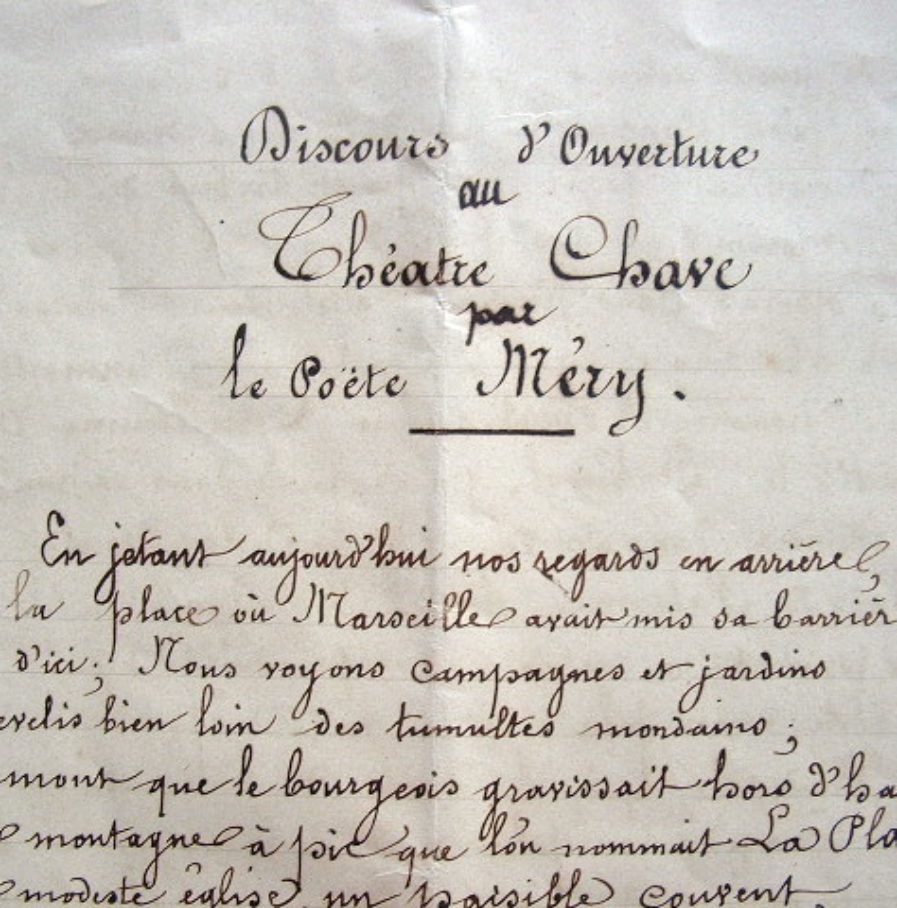 Discours d'Ouverture
au
Théatre Chave
par
le Poëte Méry.
En jetant aujourd'hui nos regards en arrière,
la place où Marseille avait mis sa barrièr
d'ici; Nous voyons campagnes et jardins
evelis bien loin des tumultes mondains;
mont que le bourgeois gravissait hors d'ha
montagne à pic que l'on nommait La Pla
modeste église, un paisible couvent,